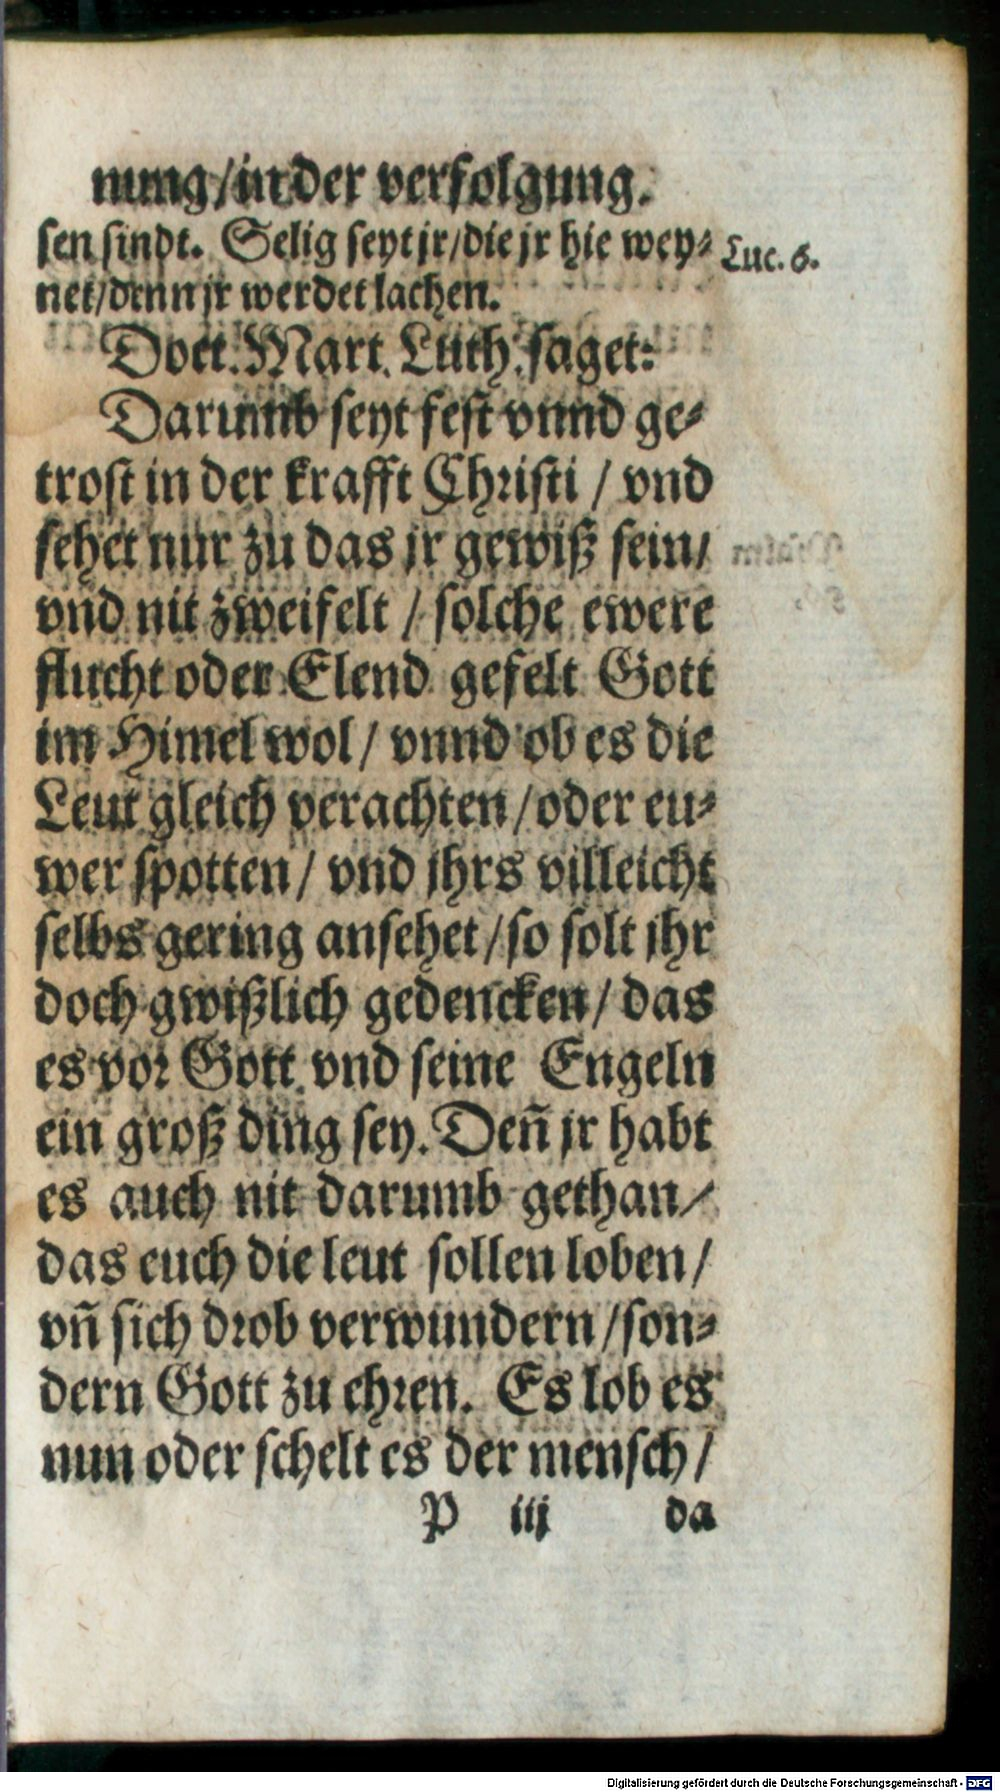 nung/in der verfolgung.
sen sindt. Selig seyt jr/die jr hie wey⸗
Luc. 6.
net/denn jr werdet lachen.
Doct. Mart. Luth. saget:
Darumb seyt fest vnnd ge⸗
trost in der krafft Christi / vnd
sehet nur zu das jr gewiß sein/
vnd nit zweifelt / solche ewere
flucht oder Elend gefelt Gott
im Himel wol / vnnd ob es die
Leut gleich verachten / oder eu⸗
wer spotten / vnd jhrs villeicht
selbs gering ansehet / so solt jhr
doch gwißlich gedencken / das
es vor Gott vnd seine Engeln
ein groß ding sey. Deñ jr habt
es auch nit darumb gethan/
das euch die leut sollen loben /
vñ sich drob verwundern / son⸗
dern Gott zu ehren. Es lob es
nun oder schelt es der mensch /
P iij da
Digitalisierung gefördert durch die Deutsche Forschungsgemeinschaft - DFG